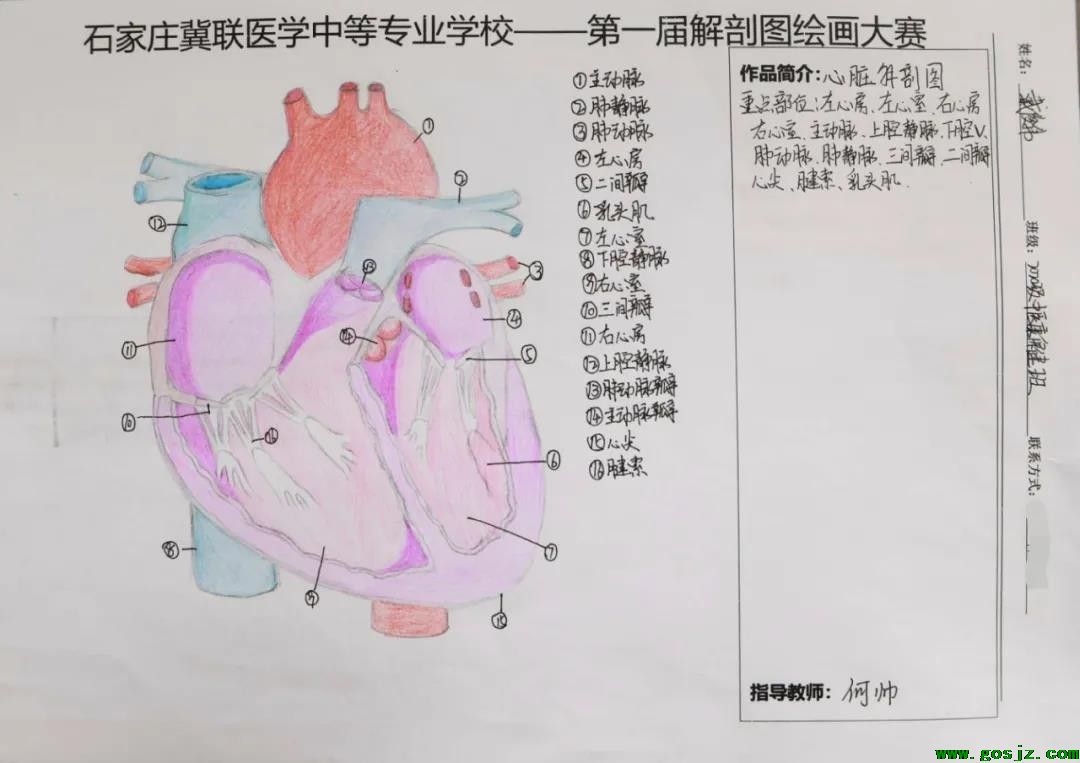 石家庄冀联医学中等专业学校——第一届解剖图绘画大赛
①主动脉
②肺静脉
③肺动脉
④左心房
⑤二间瓣
⑥乳头肌
⑦左心室
⑧下腔静脉
⑨右心室
⑩三间瓣
⑪右心房
⑫上腔静脉
⑬肺动脉瓣
⑭主动脉瓣
⑮心尖
⑯腱索
①
②
③
④
⑤
⑥
⑦
⑧
⑨
⑩
⑪
⑫
⑬
⑭
⑮
⑯
作品简介:心脏解剖图
重点部位:左心房、左心室、右心房
右心室、主动脉、上腔静脉、下腔V
肺动脉、肺静脉、三间瓣、二间瓣
心尖、腱索、乳头肌.
指导教师:何帅
姓名:
班级:
联系方式:
www.gosjz.com